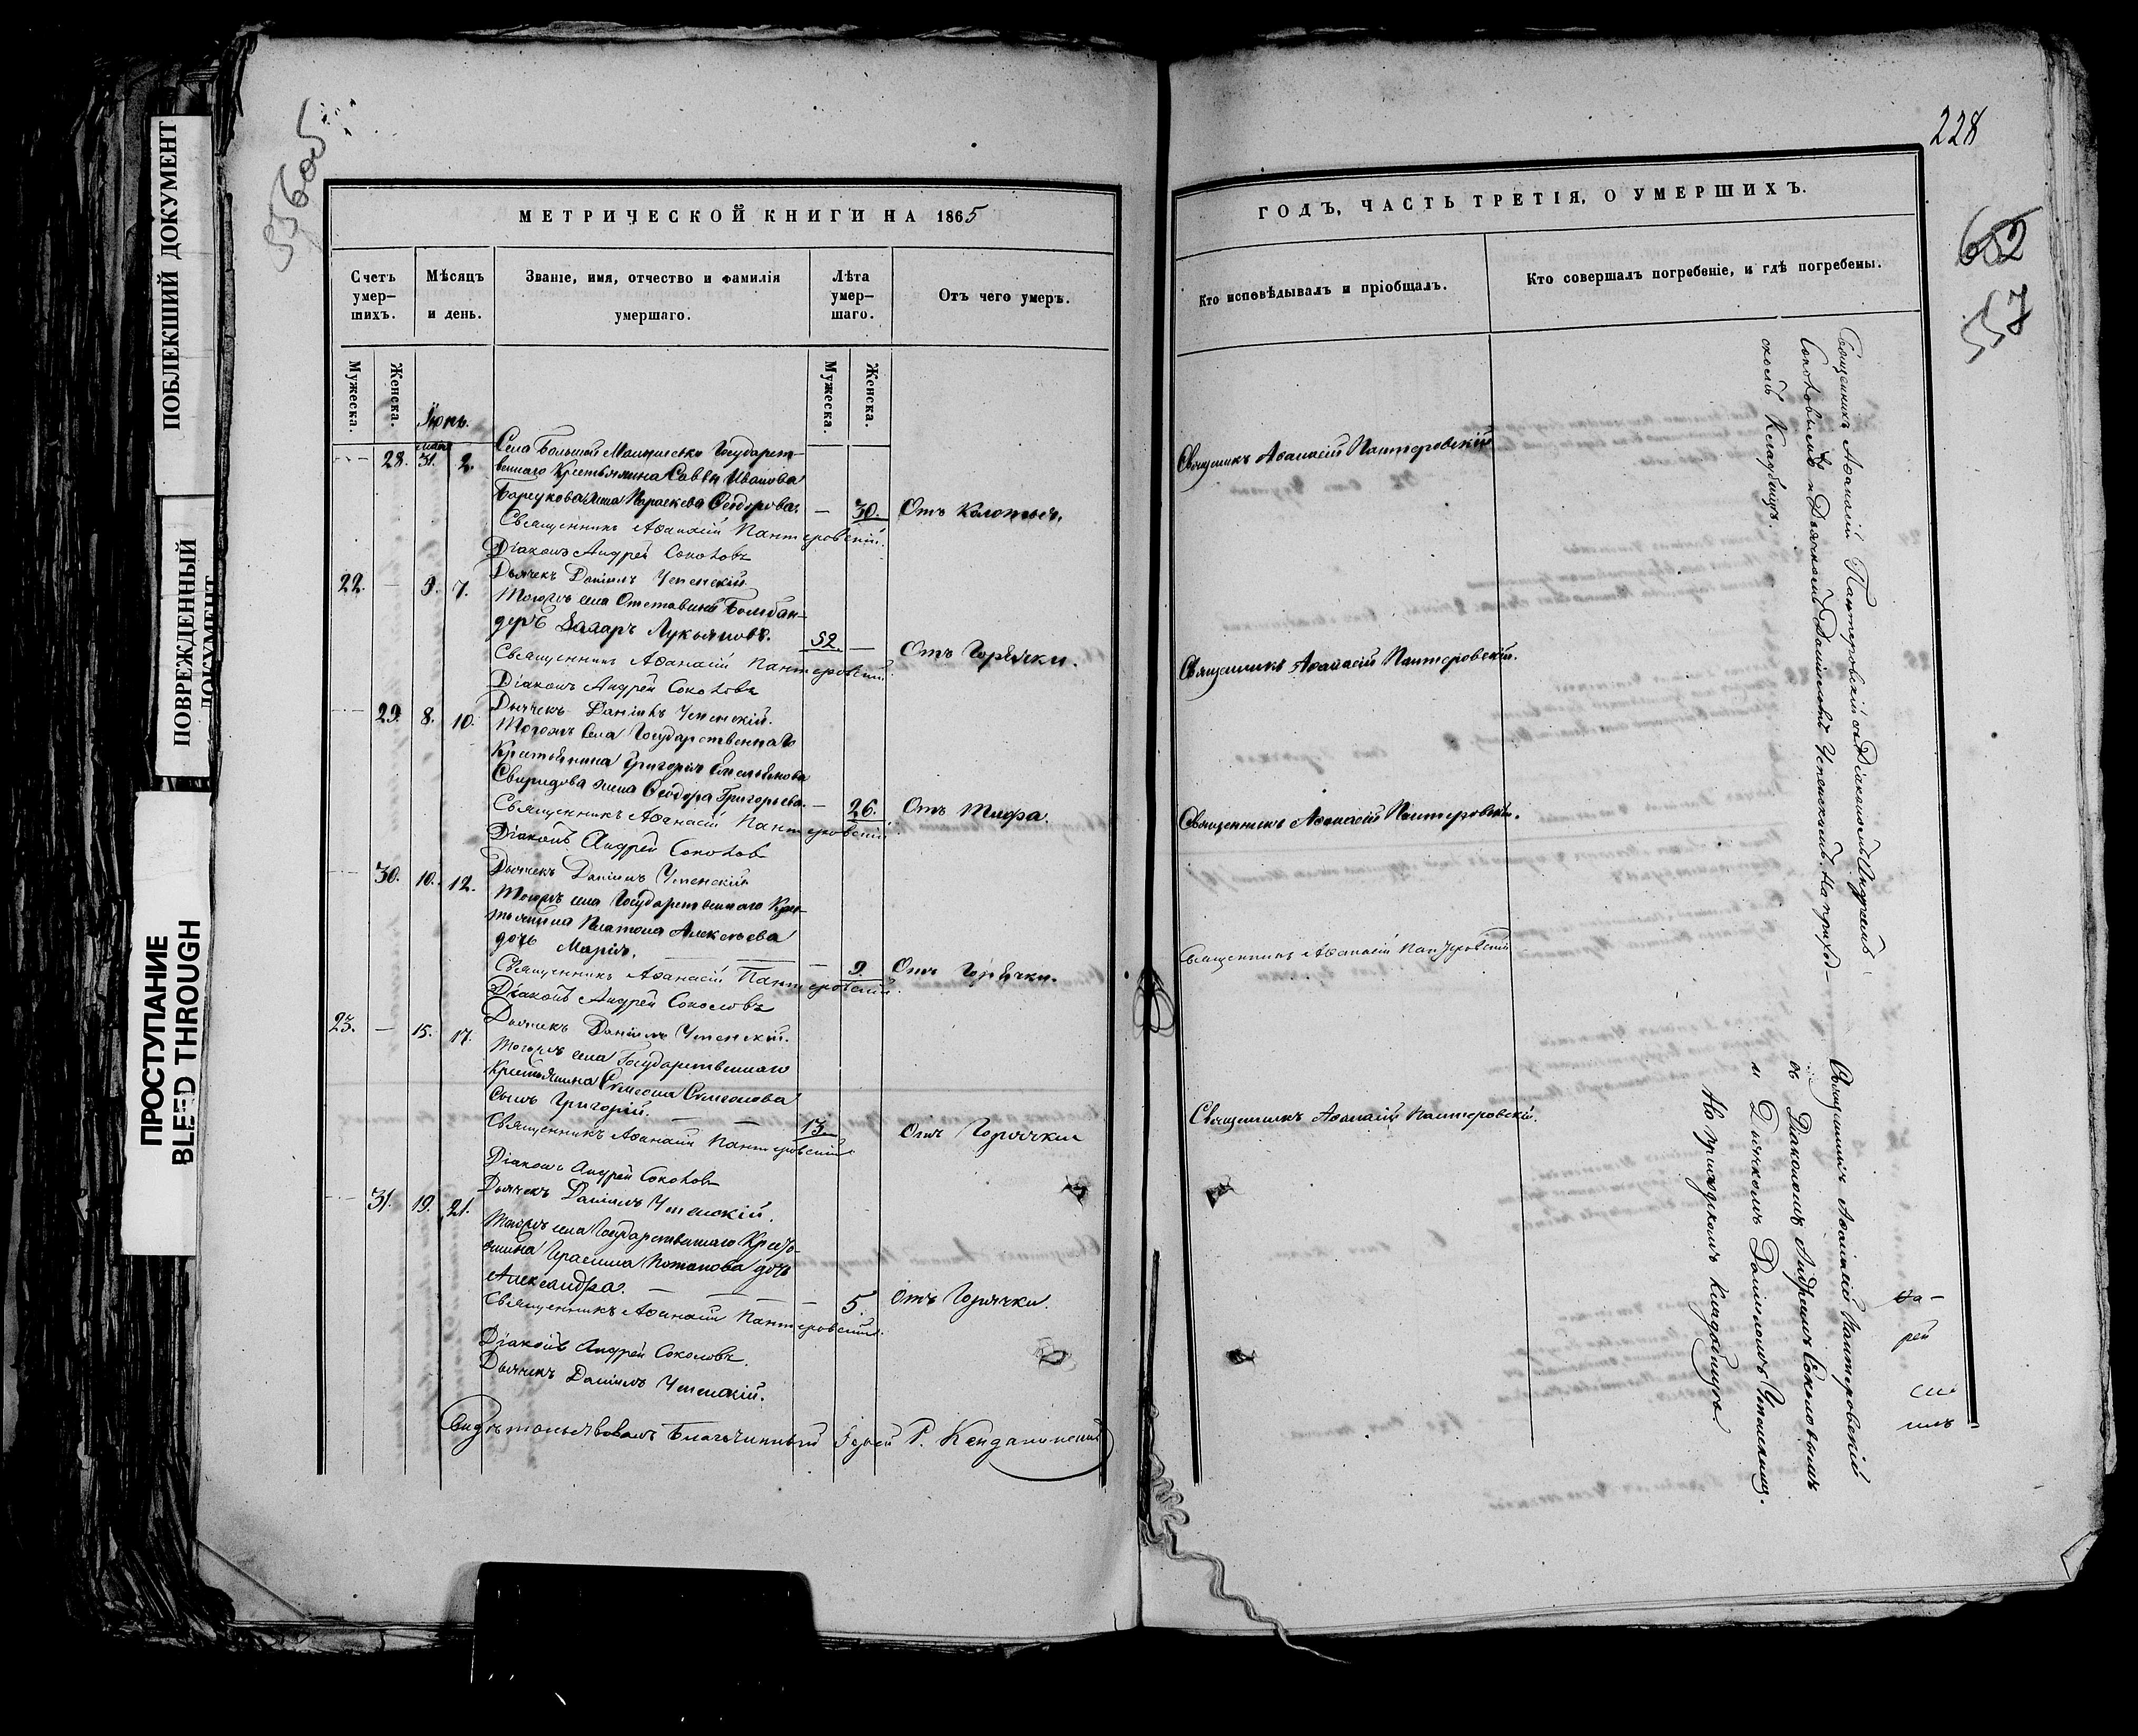 ПОБЛЕКШИЙ ДОКУМЕНТ
ПОВРЕЖДЕННЫЙ
ДОКУМЕНТ
ПРОСТУПАНИЕ
BLEED THROUGH
228
652
557
МЕТРИЧЕСКОЙ КНИГИ НА 1865
Счетъ умер-шихъ.
Мѣсяцъ и день.
Званіе, имя, отчество и фамилія умершаго.
Лѣта умер-шаго.
Отъ чего умеръ.
Мужеска.
Женска.
Мужеска.
Женска.
Іюнь.
28. 31. 2. Села Большой Государст-
веннаго Крестьянина Саввы Иванова
жена Параскева Феодорова — 30. Отъ
Священникъ Аѳанасій Пантеровскій.
Діаконъ Андрей Соколовъ
Дьячекъ Даніилъ Успенскій
22. — 9. 7. Тогожъ села Отставной Бомбан-
деръ Лукьяновъ. 52. — Отъ Горячки.
Священникъ Аѳанасій Пантеровскій.
Діаконъ Андрей Соколовъ
Дьячекъ Даніилъ Успенскій.
29. 8. 10. Тогожъ Села Государственнаго
Крестьянина Григорія Емельянова
Свиридова жена Феодора Григорьева. — 26. Отъ Тифа.
Священникъ Аѳанасій Пантеровскій
Діаконъ Андрей Соколовъ
Дьячекъ Даніилъ Успенскій
30. 10. 12. Тогожъ села Государственнаго Кре-
стьянина Платона Алексѣева
дочь Марія. — 9. Отъ Горячки.
Священникъ Аѳанасій Пантеровскій.
Діаконъ Андрей Соколовъ
Дьячекъ Даніилъ Успенскій.
23. — 15. 17. Тогожъ села Государственнаго
Крестьянина Симеона Симеонова
Сынъ Григорій. — 13. Отъ Горячки
Священникъ Аѳанасій Пантеровскій
Діаконъ Андрей Соколовъ
Дьячекъ Даніилъ Успенскій.
31. 19. 21. Тогожъ села Государственнаго Кресть-
янина Герасима Потапова дочь
Александра. — 5. Отъ Горячки.
Священникъ Аѳанасій Пантеровскій.
Діаконъ Андрей Соколовъ.
Дьячекъ Даніилъ Успенскій.
Свидѣтельствовалъ Благочинный Іерей Р.
ГОДЪ, ЧАСТЬ ТРЕТІЯ, О УМЕРШИХЪ.
Кто исповѣдывалъ и пріобщалъ.
Кто совершалъ погребеніе, и гдѣ погребены.
Священникъ Аѳанасій Пантеровскій
Священникъ Аѳанасій Пантеровскій.
Священникъ Аѳанасій Пантеровскій.
Священникъ Аѳанасій Пантеровскій
Священникъ Аѳанасій Пантеровскій.
Священникъ Аѳанасій Пантеровскій съ Діакономъ Андреемъ
Соколовымъ и Дьячкомъ Даніиломъ Успенскимъ. На приход-
скомъ Кладбищѣ.
Священникъ Аѳанасій Пантеровскій
съ Діакономъ Андреемъ Соколовымъ
и Дьячкомъ Даніиломъ Успенскимъ.
На приходскомъ Кладбищѣ.
рей